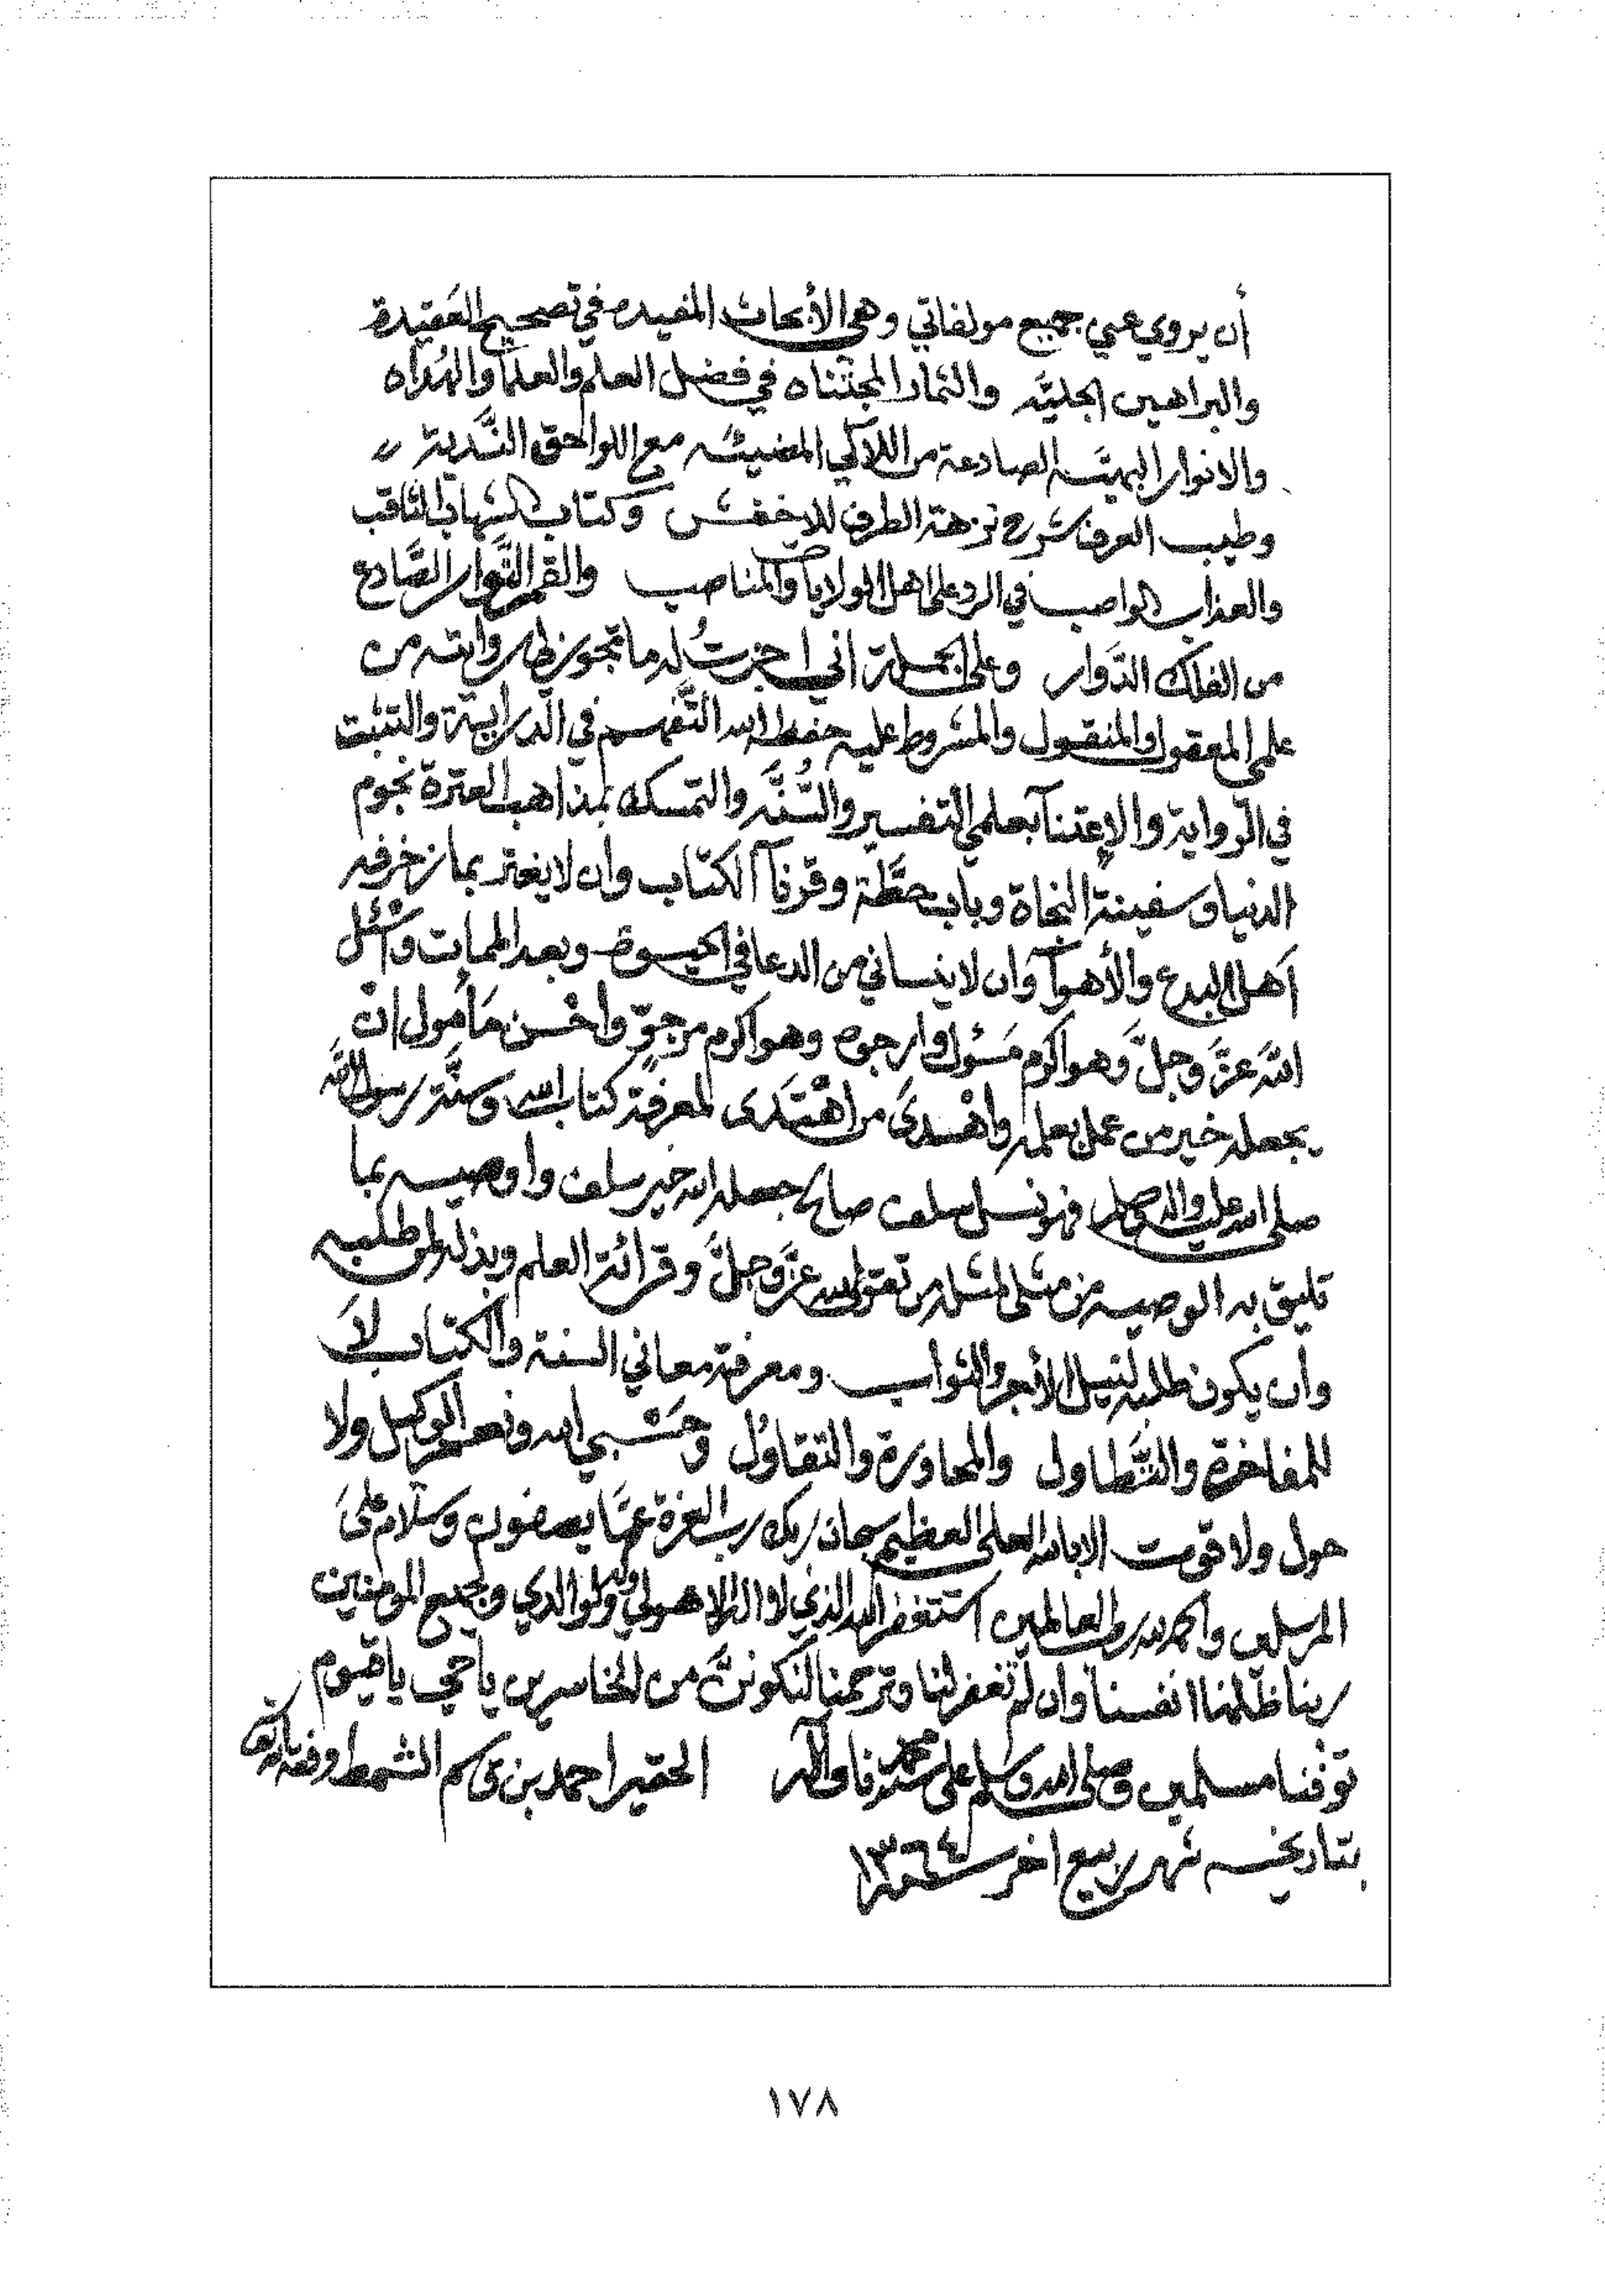 أن يروي عني جميع مولفاتي وهي الأبحاث المفيده في تصحيح العقيدة
والبراهين الجليَّه والثمار المجتناه في فضل العلم والعلمآ والهُداه
والانوار البهيَّه الصادعة من اللآلي المضيئه مع اللواحق النَّديّة
وطيب العرف شرح نزهة الطرف للاخفش وكتاب الشهاب الثاقب
والعذاب الواصب في الرد على اهل الولايات والمناصب والقمر النَّوار الصَّادع
من الفلك الدَّوار وعلى الجملة اني اجزتُ له ما تجوز لي روايته من
علمي المعقول والمنقول والمشروط عليه حفظه الله التَّفهم في الدرايَّة والتثبت
في الرواية والإعتنآ بعلمي التفسير والسُّنَّه والتمسك بمذاهب العترة نجوم
الدنيا وسفينة النجاة وباب حطَّة وقرنآ الكتاب وان لا يغتر بما زخرفه
أهل البدع والأهوآ وان لا ينساني من الدعا في الحيوة وبعد الممات وأسئل
اللهَ عزَّ وجلَّ وهو اكرم مَسئول وارجوه وهو اكرم مرجوٍّ واحسن مَأمول ان
يجعله خير من عمل بعلمه واهدىَ من اهْتَدىَ لمعرفة كتاب الله وسنَّة رسول الله
صلى الله عليه واله وسلم فهو نسل سلف صالح جعله الله خير سلف واوصيه بما
تليق به الوصيه من مثلي لمثله من تقوى الله عزَّ وجلَّ وقرائة العلم وبذله لمن طلبه
وأن يكون طلبه لنيل الأجر والثواب ومعرفة معاني السنة والكتاب لاَ
للمفاخرة والتَّطاول والمحاورة والتقاوُل وحَسْبي الله ونعم الوكيل ولا
حول ولا قوة الا بالله العلي العظيم سبحان ربك رب العزة عمَّا يصفون وسلام علىَ
المرسلين والحمد لله رب العالمين استغفر الله الذي لا اله الا هو لي ولوالدي ولجميع المومنين
ربنا ظلمنا انفسنا وان لم تغفر لنا وترحمنا لنكوننَّ من الخاسرين يا حي يا قيوم
توفنا مسلمين وصلى الله وسلم على سيدنا محمد وآله الحقير احمد بن قاسم الشمط وفقه الله
بتاريخه شهر ربيع اخر سنة ١٣٦٤
١٧٨